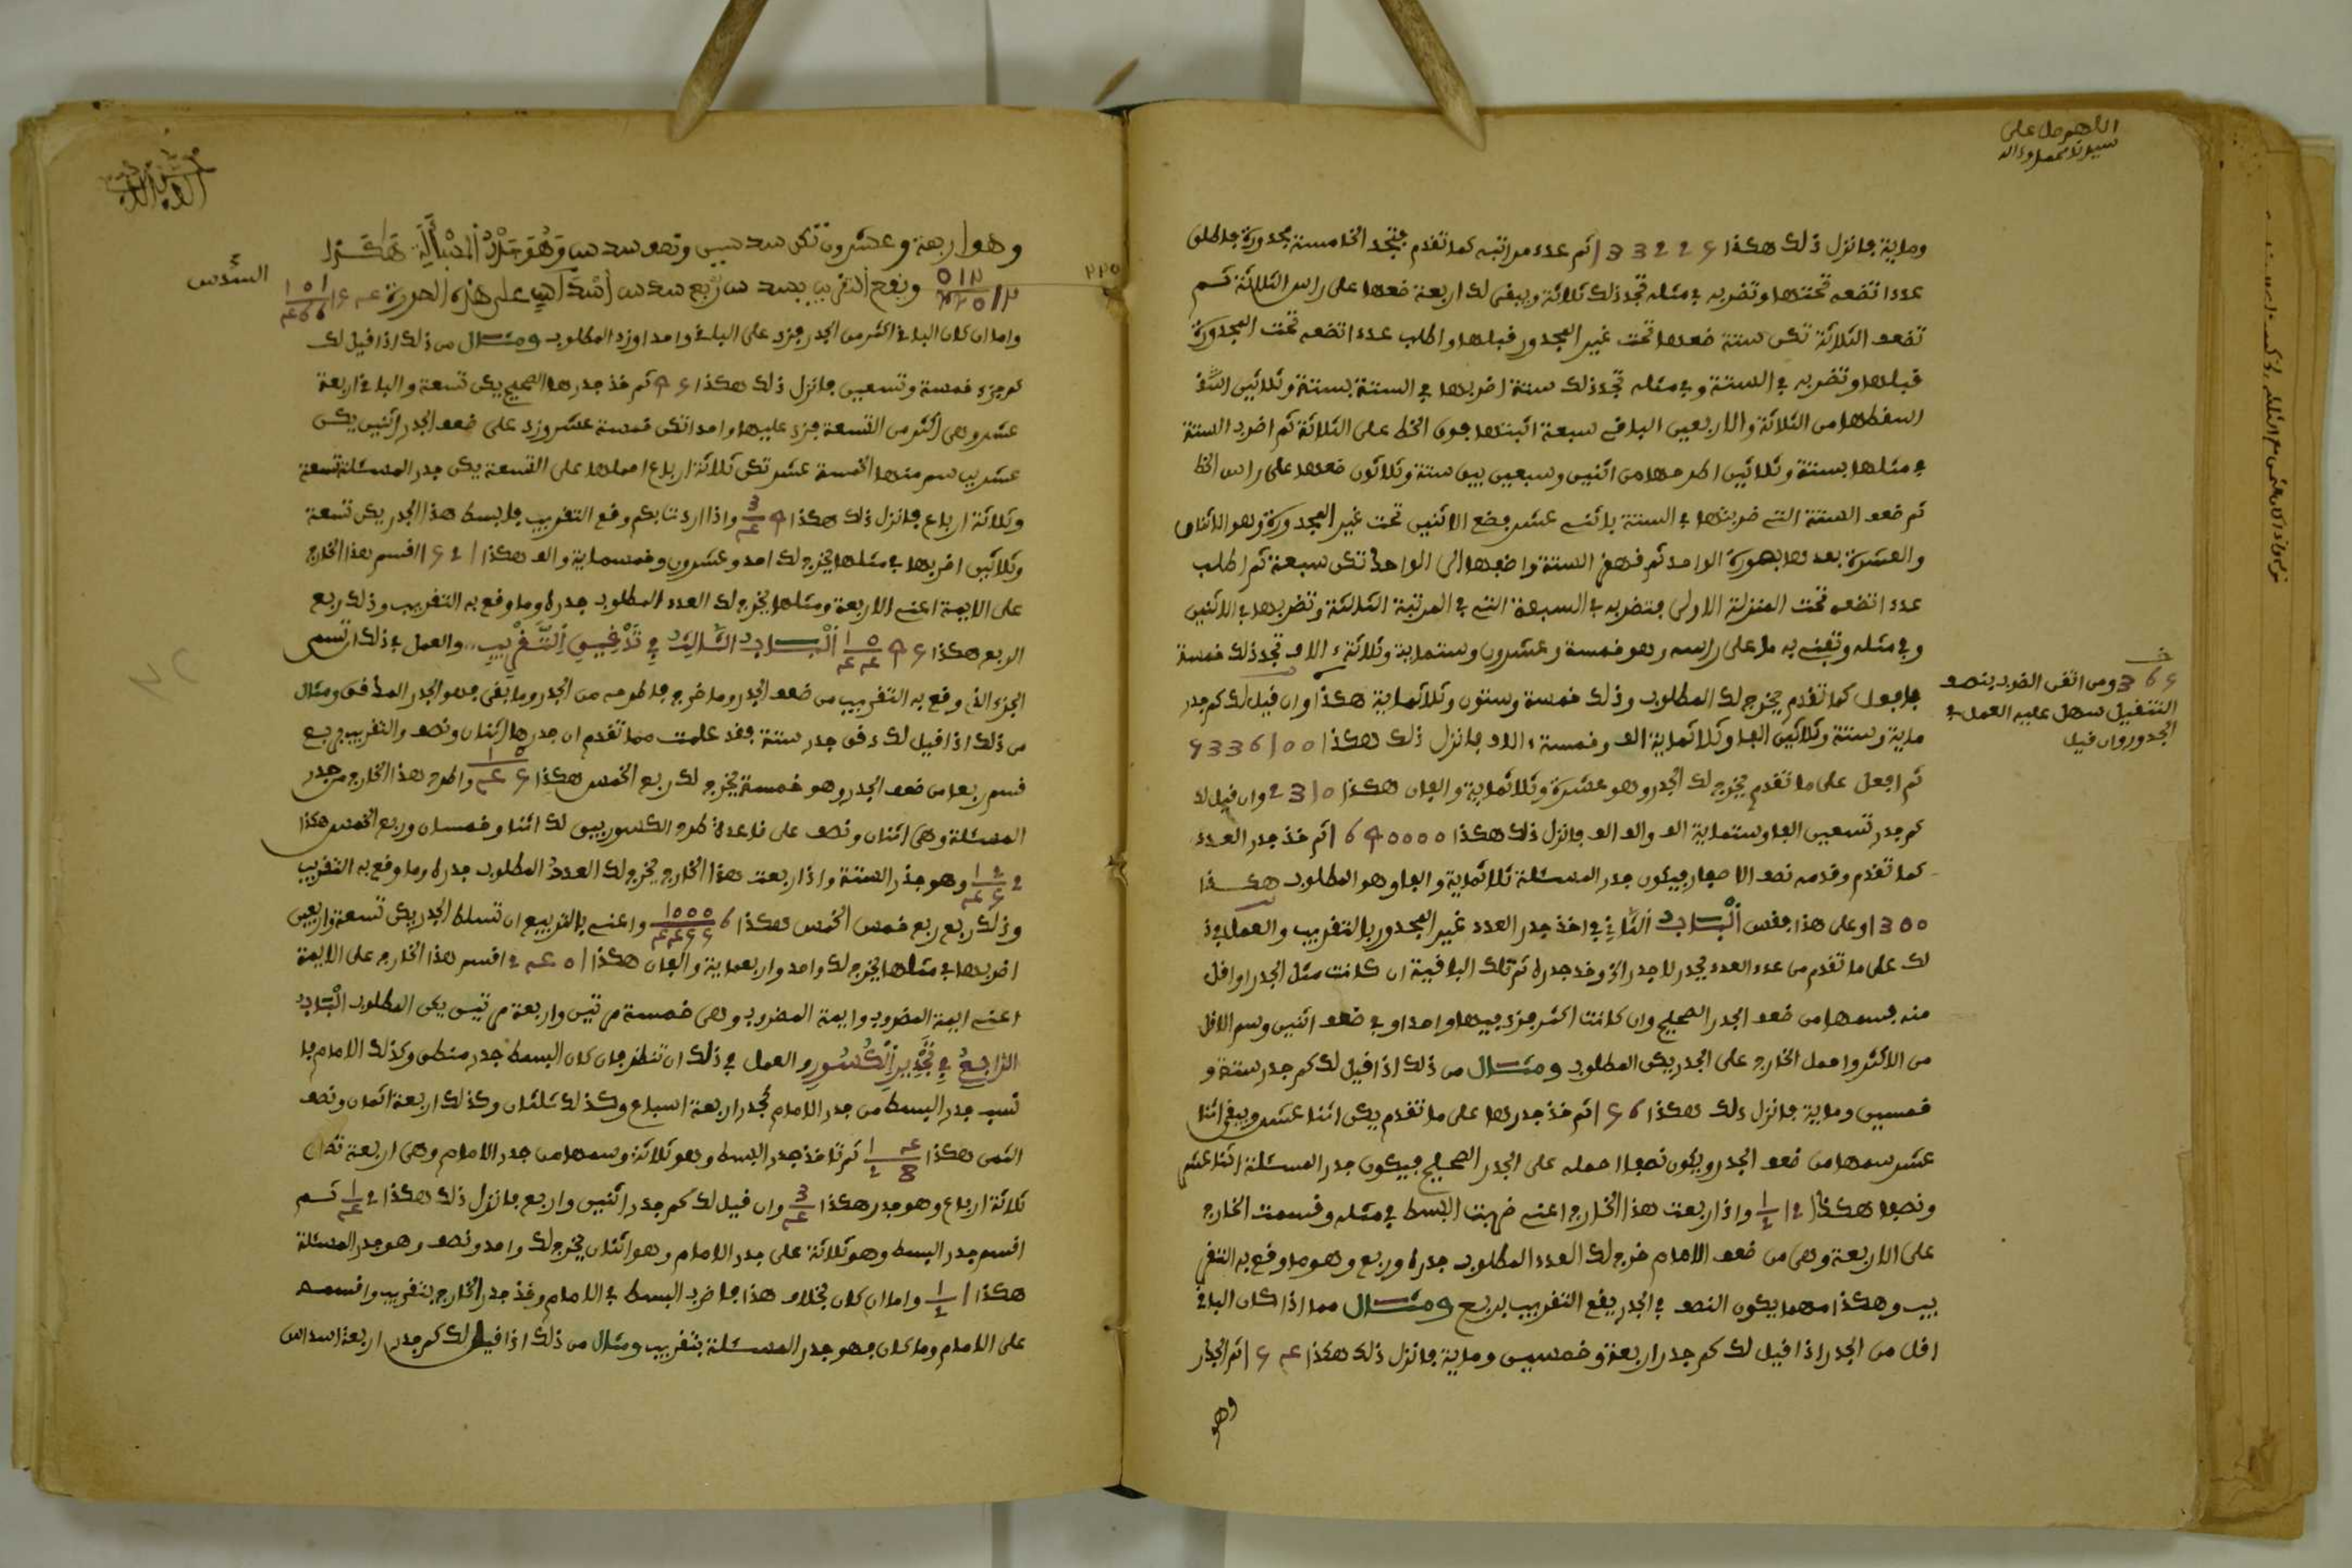 اللهم صل على
سيدنا محمد وءاله
وماية فانزل ذلك هكذا 133225 ثم عدد مراتبه كما تقدم فتجد الخامسة مجدورة فاطلب
عددا تضعه تحتها وتضربه في مثله تجد ذلك ثلاثة ويبقى لك اربعة ضعها على راس الثلاثة ثم
تضعف الثلاثة تكن ستة ضعها تحت غير المجدور قبلها واطلب عددا تضعه تحت المجدورة
قبلها وتضربه في الستة وفي مثله تجد ذلك ستة اضربها في الستة بستة وثلاثين
اسقطها من الثلاثة والاربعين الباقي سبعة اثبتها فوق الخط على الثلاثة ثم اضرب الستة
في مثلها بستة وثلاثين اطرحها من اثنين وسبعين يبق ستة وثلاثون ضعها على راس الخط
ثم ضعف الستة التي ضربتها في الستة باثني عشر فضع الاثنين تحت غير المجدورة وهو الاثنان
والعشرة بعدها بصورة الواحد ثم قهقر الستة واضفها الى الواحد تكن سبعة ثم اطلب
عددا تضعه تحت المنزلة الاولى فتضربه في السبعة التي في المرتبة الثالثة وتضربها في الاثنين
وفي مثله وتفني به ما على راسه وهو خمسة وعشرون وستماية وثلاثة ءالاف تجد ذلك خمسة
فافعل كما تقدم يخرج لك المطلوب وذلك خمسة وستون وثلاثماية هكذا وان قيل لك كم جدر
365 ومن اتقن الضرب بنصف
التنقيل سهل عليه العمل في
الجدور وان قيل
ماية وستة وثلاثين الفا وثلاثماية الف وخمسة ءالاف فانزل ذلك هكذا 5336100
ثم افعل على ما تقدم يخرج لك الجدر وهو عشرة وثلاثماية والفان هكذا 2310 وان قيل لك
كم جدر تسعين الفا وستماية الف والف الف فانزل ذلك هكذا 1690000 ثم خذ جدر العدد
كما تقدم وقدمه نصف الاصفار فيكون جدر المسئلة ثلاثماية والفا وهو المطلوب هكذا
1300 وعلى هذا فقس الباب الثاني في اخذ جدر العدد غير المجدور بالتقريب والعمل في ذ
لك على ما تقدم من عدد العدد بجدر لا جدر الخ وخذ جدره ثم تلك الباقية ان كانت مثل الجدر او اقل
منه فسمها من ضعف الجدر الصحيح وان كانت اكثر فزد فيها واحدا وفي ضعف اثنين وسم الاقل
من الاكثر واحمل الخارج على الجدر يكن المطلوب ومثال من ذلك اذا قيل لك كم جدر ستة و
خمسين وماية فانزل ذلك هكذا 156 ثم خذ جدرها على ما تقدم يكن اثنا عشر ويبقى اثنا
عشر سمها من ضعف الجدر ويكون نصفا احمله على الجدر الصحيح فيكون جدر المسئلة اثنا عشر
ونصفا هكذا 12 1/2 واذا ربعت هذا الخارج اعني ضربت البسط في مثله وقسمت الخارج
على الاربعة وهي من ضعف الامام خرج لك العدد المطلوب جدره وربع وهو ما وقع به التقر
يب وهكذا مهما يكون النصف في الجدر يقع التقريب بربع ومثال مما اذا كان الباقي
اقل من الجدر اذا قيل لك كم جدر اربعة وخمسين وماية فانزل ذلك هكذا 154 ثم الجدر
وهو
وهو اربعة وعشرون تكن سدسين ونصف سدس وهو جدر المسألة هكذا
السدس
ويقع التقريب بسدس وربع سدس على هذه الصورة
واما ان كان الباقي اكثر من الجدر فزد على الباقي واحدا وزد المطلوب ومثال من ذلك اذا قيل لك
كم جدر خمسة وتسعين فانزل ذلك هكذا 95 ثم خذ جدرها الصحيح يكن تسعة والباقي اربعة
عشر وهي اكثر من التسعة فزد عليها واحدا تكن خمسة عشر وزد على ضعف الجدر اثنين يكن
عشرين سم منها الخمسة عشر تكن ثلاثة ارباع احملها على التسعة يكن جدر المسئلة تسعة
وثلاثة ارباع فانزل ذلك هكذا 9 3/4 واذا اردت بكم وقع التقريب فابسط هذا الجدر يكن تسعة
وثلاثين اضربها في مثلها يخرج لك احد وعشرون وخمسماية والف هكذا 1521 اقسم هذا الخارج
على الايمة اعني الاربعة ومثلها يخرج لك العدد المطلوب جدره وما وقع به التقريب وذلك ربع
الربع هكذا 95 الباب الثالث في تدقيق التقريب والعمل في ذلك ان تسم
الجزء الذي وقع به التقريب من ضعف الجدر وما خرج فاطرحه من الجدر وما بقي فهو الجدر المدقق ومثال
من ذلك اذا قيل لك دقق جدر ستة فقد علمت مما تقدم ان جدرها اثنان ونصف والتقريب بربع
فسم ربعا من ضعف الجدر وهو خمسة يخرج لك ربع الخمس هكذا واطرح هذا الخارج من جدر
المسئلة وهي اثنان ونصف على قاعدة طرح الكسور يبق لك اثنا وخمسان وربع الخمس هكذا
وهو جذر الستة واذا ربعت هذا الخارج يخرج لك العدد المطلوب جدره وما وقع به التقريب
وذلك ربع ربع خمس الخمس هكذا واعني بالتربيع ان تبسط الجدر يكن تسعة واربعين
اضربها في مثلها يخرج لك واحد واربعماية والفان هكذا 2401 اقسم هذا الخارج على الايمة
اعني ايمة المضروب وايمة المضروب وهي خمسة مرتين واربعة مرتين يكن المطلوب الباب
الرابع في تجدير الكسور والعمل في ذلك ان تنظر فان كان البسط جدر منطق وكذلك الامام فا
نسب جدر البسط من جدر الامام كجدر اربعة اسباع وكذلك ثلثان وكذلك اربعة اثمان ونصف
الثمن هكذا ثم تاخذ جدر البسط وهو ثلاثة وسمها من جدر الامام وهي اربعة تكن
ثلاثة ارباع وهو جدر هكذا 3/4 وان قيل لك كم جدر اثنين واربع فانزل ذلك هكذا 2 1/4 ثم
اقسم جدر البسط وهو ثلاثة على جدر الامام وهو اثنان يخرج لك واحد ونصف وهو جدر المسئلة
هكذا 1 1/2 واما ان كان بخلاف هذا فاضرب البسط في الامام وخذ جدر الخارج بتقريب واقسمه
على الامام وما كان فهو جدر المسئلة بتقريب ومثال من ذلك اذا قيل لك كم جدر اربعة اسداس